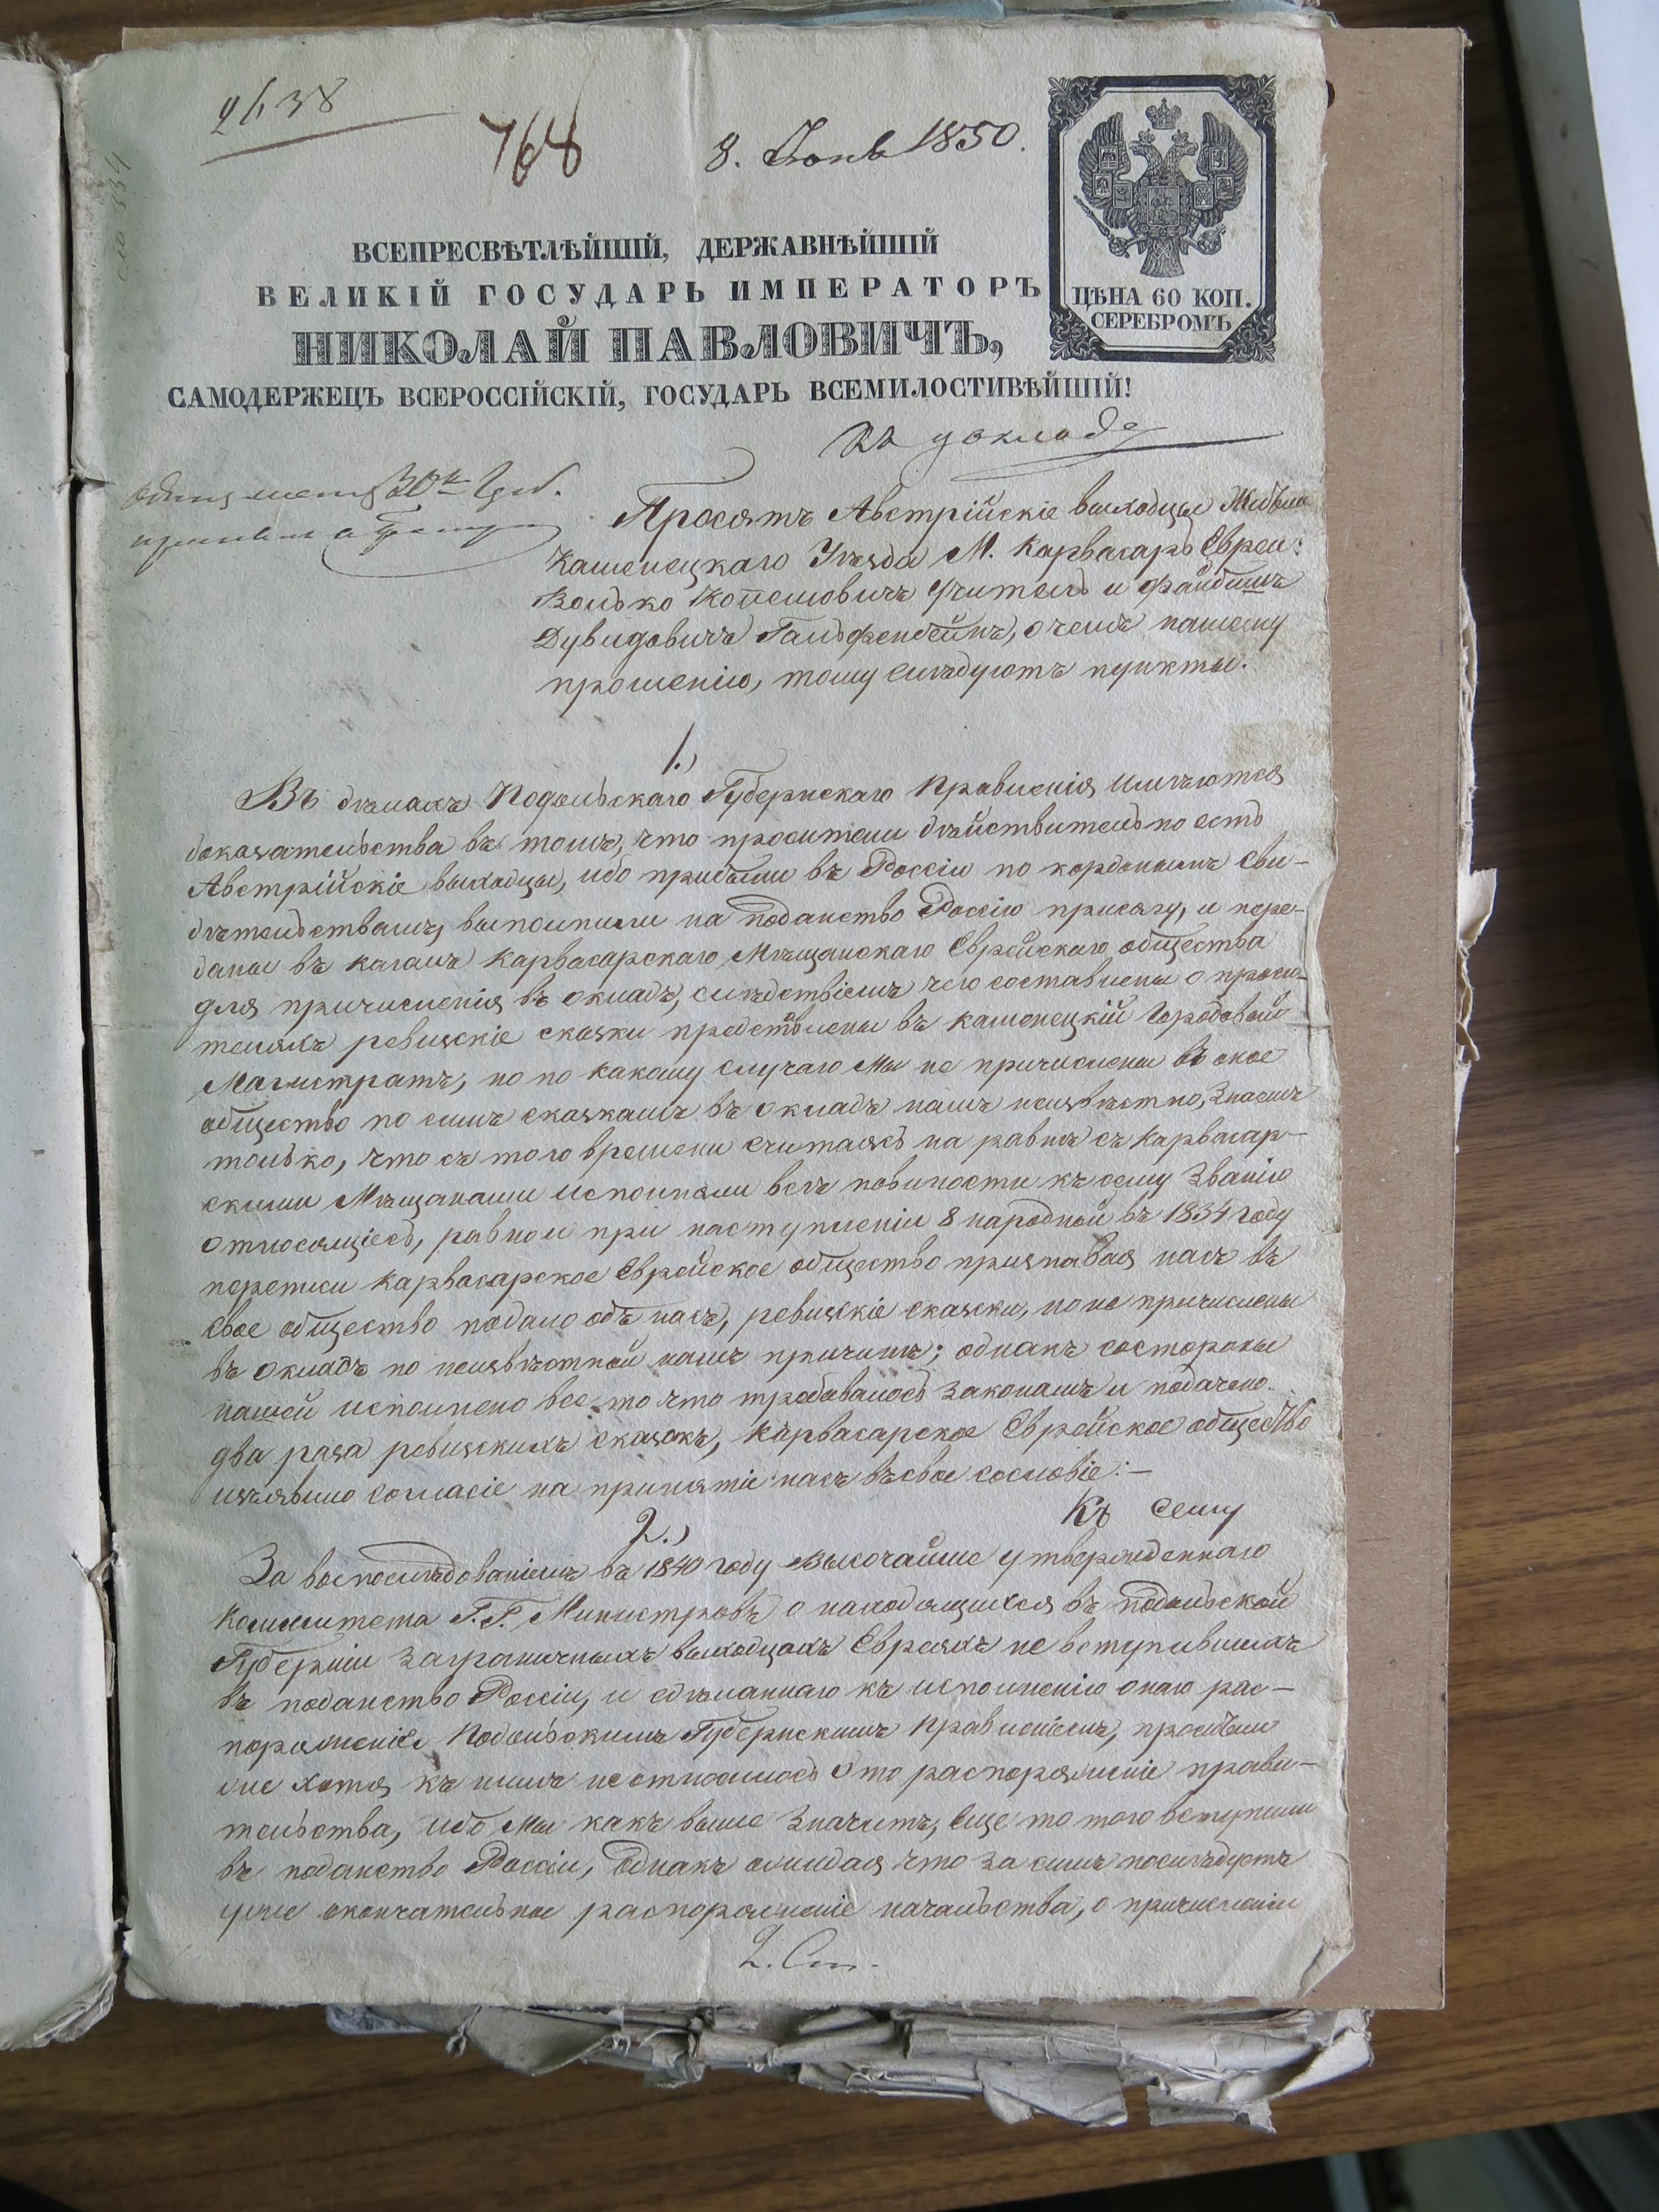 768
8. Іюнь 1850.
ЦѢНА 60 КОП.
СЕРЕБРОМЪ
ВСЕПРЕСВѢТЛѢЙШІЙ, ДЕРЖАВНѢЙШІЙ
ВЕЛИКІЙ ГОСУДАРЬ ИМПЕРАТОРЪ
НИКОЛАЙ ПАВЛОВИЧЪ,
САМОДЕРЖЕЦЪ ВСЕРОССІЙСКІЙ, ГОСУДАРЬ ВСЕМИЛОСТИВѢЙШІЙ!
къ докладу
Просятъ Австрійскіе выходцы
Каменецкаго Уѣзда М. Карвасаръ Евреи:
Волько Учитель и Файбишъ
Дувидовичъ Гальфенбейнъ, о чемъ нашему
прошенію, тому слѣдуютъ пункты.
1.)
Въ дѣлахъ Подольскаго Губернскаго Правленія имѣются
доказательства въ томъ, что просители дѣйствительно есть
Австрійскіе выходцы, ибо прибыли въ Россію по кордонымъ сви-
дѣтельствамъ, выполнили на поданство Россіи присягу, и пере-
даны въ кагалъ Карвасарскаго Мѣщанскаго Еврейскаго общества
для причисленія въ окладъ, слѣдствіемъ чего составлены о проси-
теляхъ ревизскіе сказки представлены въ Каменецкій Городовой
Магистратъ, но по какому случаю мы не причислены въ оное
общество по симъ сказкамъ въ окладъ намъ неизвѣстно, Знаемъ
только, что съ того времени считаясь на равнѣ съ Карвасар-
скими Мѣщанами исполняли всѣ повиности къ сему Званію
относящіесь, равно и при наступленіи 8 народной въ 1834 году
переписи Карвасарское Еврейское общество признавая насъ въ
свое общество подано объ насъ, ревизскіе сказки, но не причислены
въ окладъ по неизвѣстной намъ причинѣ; однакъ состороны
нашей исполнено все то что требовалось Законамъ и подачею
два раза ревизскихъ сказокъ, Карвасарское Еврейское общество
изъявило согласіе на принятіе насъ въ свое сословіе:—
Къ сему
2.)
За воспослѣдованіемъ въ 1840 году Высочайше утвержденнаго
Коммитета Г.Г. Министровъ о находящихся въ Подольской
Губерніи Заграничныхъ выходцахъ Евреяхъ не вступившихъ
въ поданство Россіи, и сдѣланнаго къ исполненію онаго рас-
поряженіе Подольскимъ Губернскимъ Правленіемъ, просители
хотя къ нимъ неотносилось это распоряженіе прави-
тельства, ибо мы какъ выше Значитъ, еще то того вступили
въ поданство Россіи, Однакъ ожидая что за симъ послѣдуетъ
уже окончательное распоряженіе начальства, о причисленіи